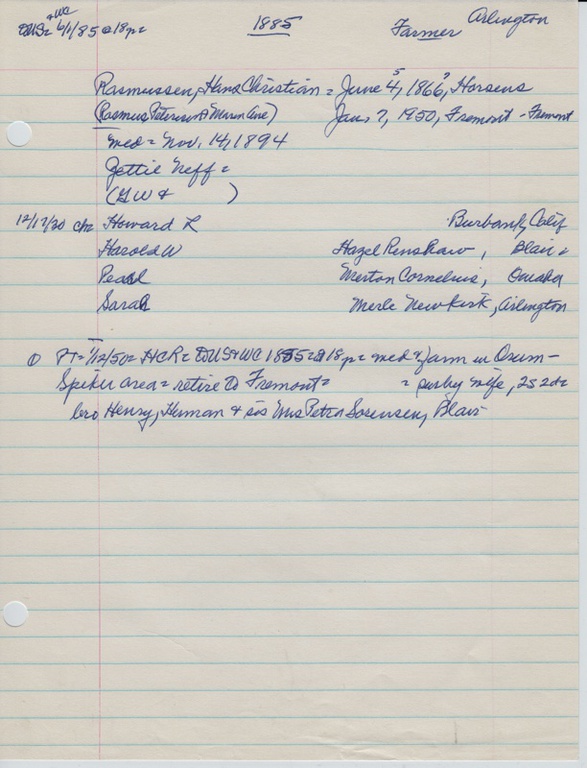 +WC
DUS= 6/1/85 @ 18 p= 1885 Farmer Arlington
Rasmussen, Hans Christian = June 4, 5 1866, ? Horsens
(Rasmus Peterson & Maren Ane) Jan. 7, 1950, Fremont - Fremont
med = Nov. 14, 1894
Jettie Neff =
(G W & )
12/17/20 ch= Howard R Burbank, Calif
Harold W Hazel Renshaw, Blair =
Pearl Merton Cornelius, Omaha
Sarah Merle Newkirk, Arlington
① FT = 1/12/50 = HCR = DUS & WC 1885 = @ 18 p = med & farm in Orum -
Spiker area = retire to Fremont = = sur by wife, 2s 2d =
bro Henry, Herman & sis Mrs Petra Sorensen, Blair